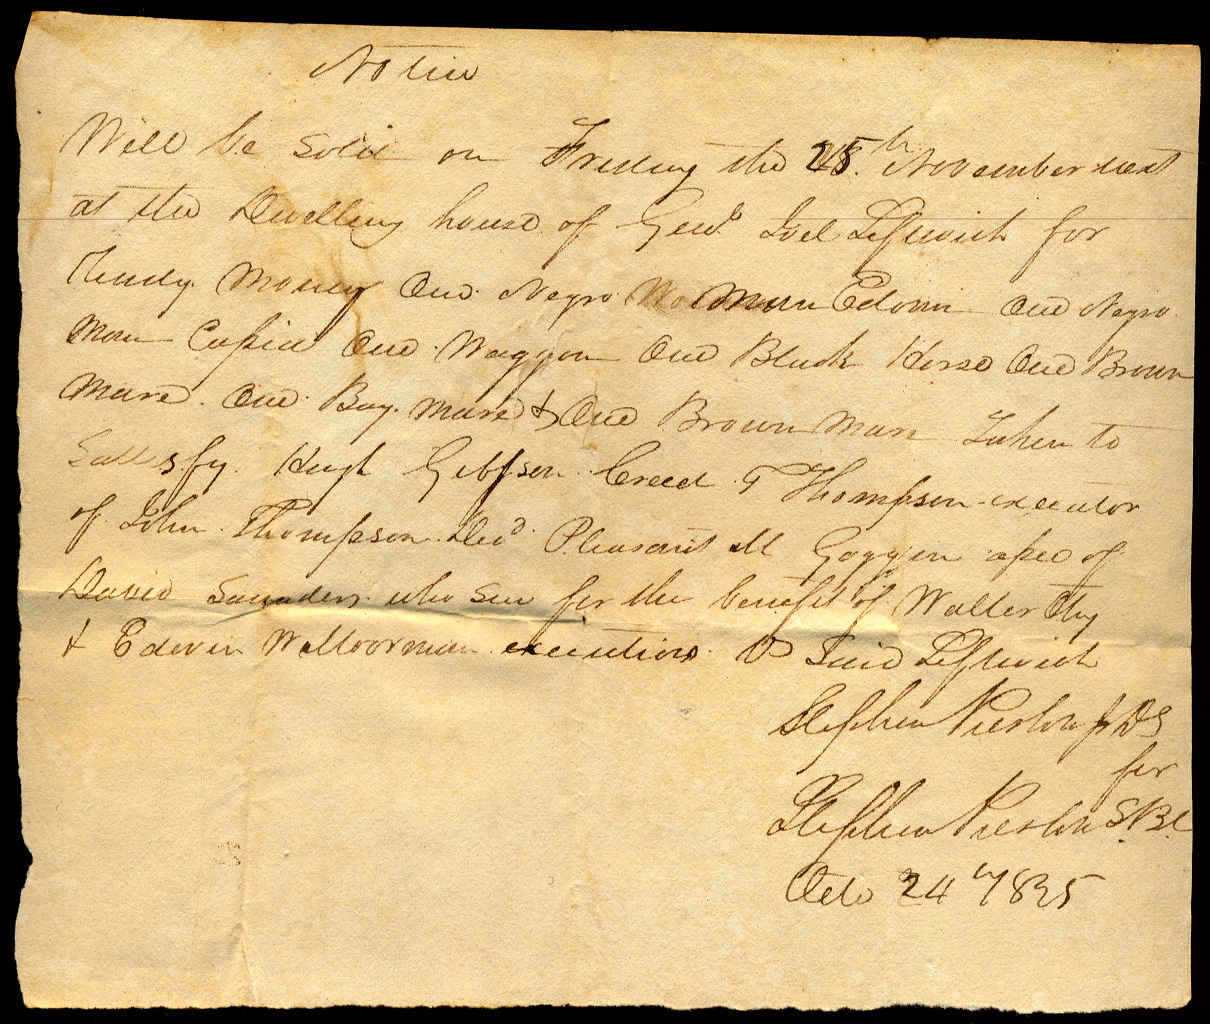 Notice
Will be Sold on Friday the 25th November next
at the Dwelling house of Genl. Joel Leftwich for
Ready Money One Negro Man Edom One Negro
Man Capin One Waggon One Black Horse One Brown
Mare One Bay Mare & One Brown Man Taken to
Sattisfy Hugh Gibpson Creed T Thompson executor
of John Thompson Decd. Pleasant M Goggin apee of
David Saunders who sue for the benefit of Walter Oty
& Edwin W Moorman executions Vs Said Leftwich
Stephen Preston jr DS
for
Stephen Preston S.B.C.
Octo 24th 1835